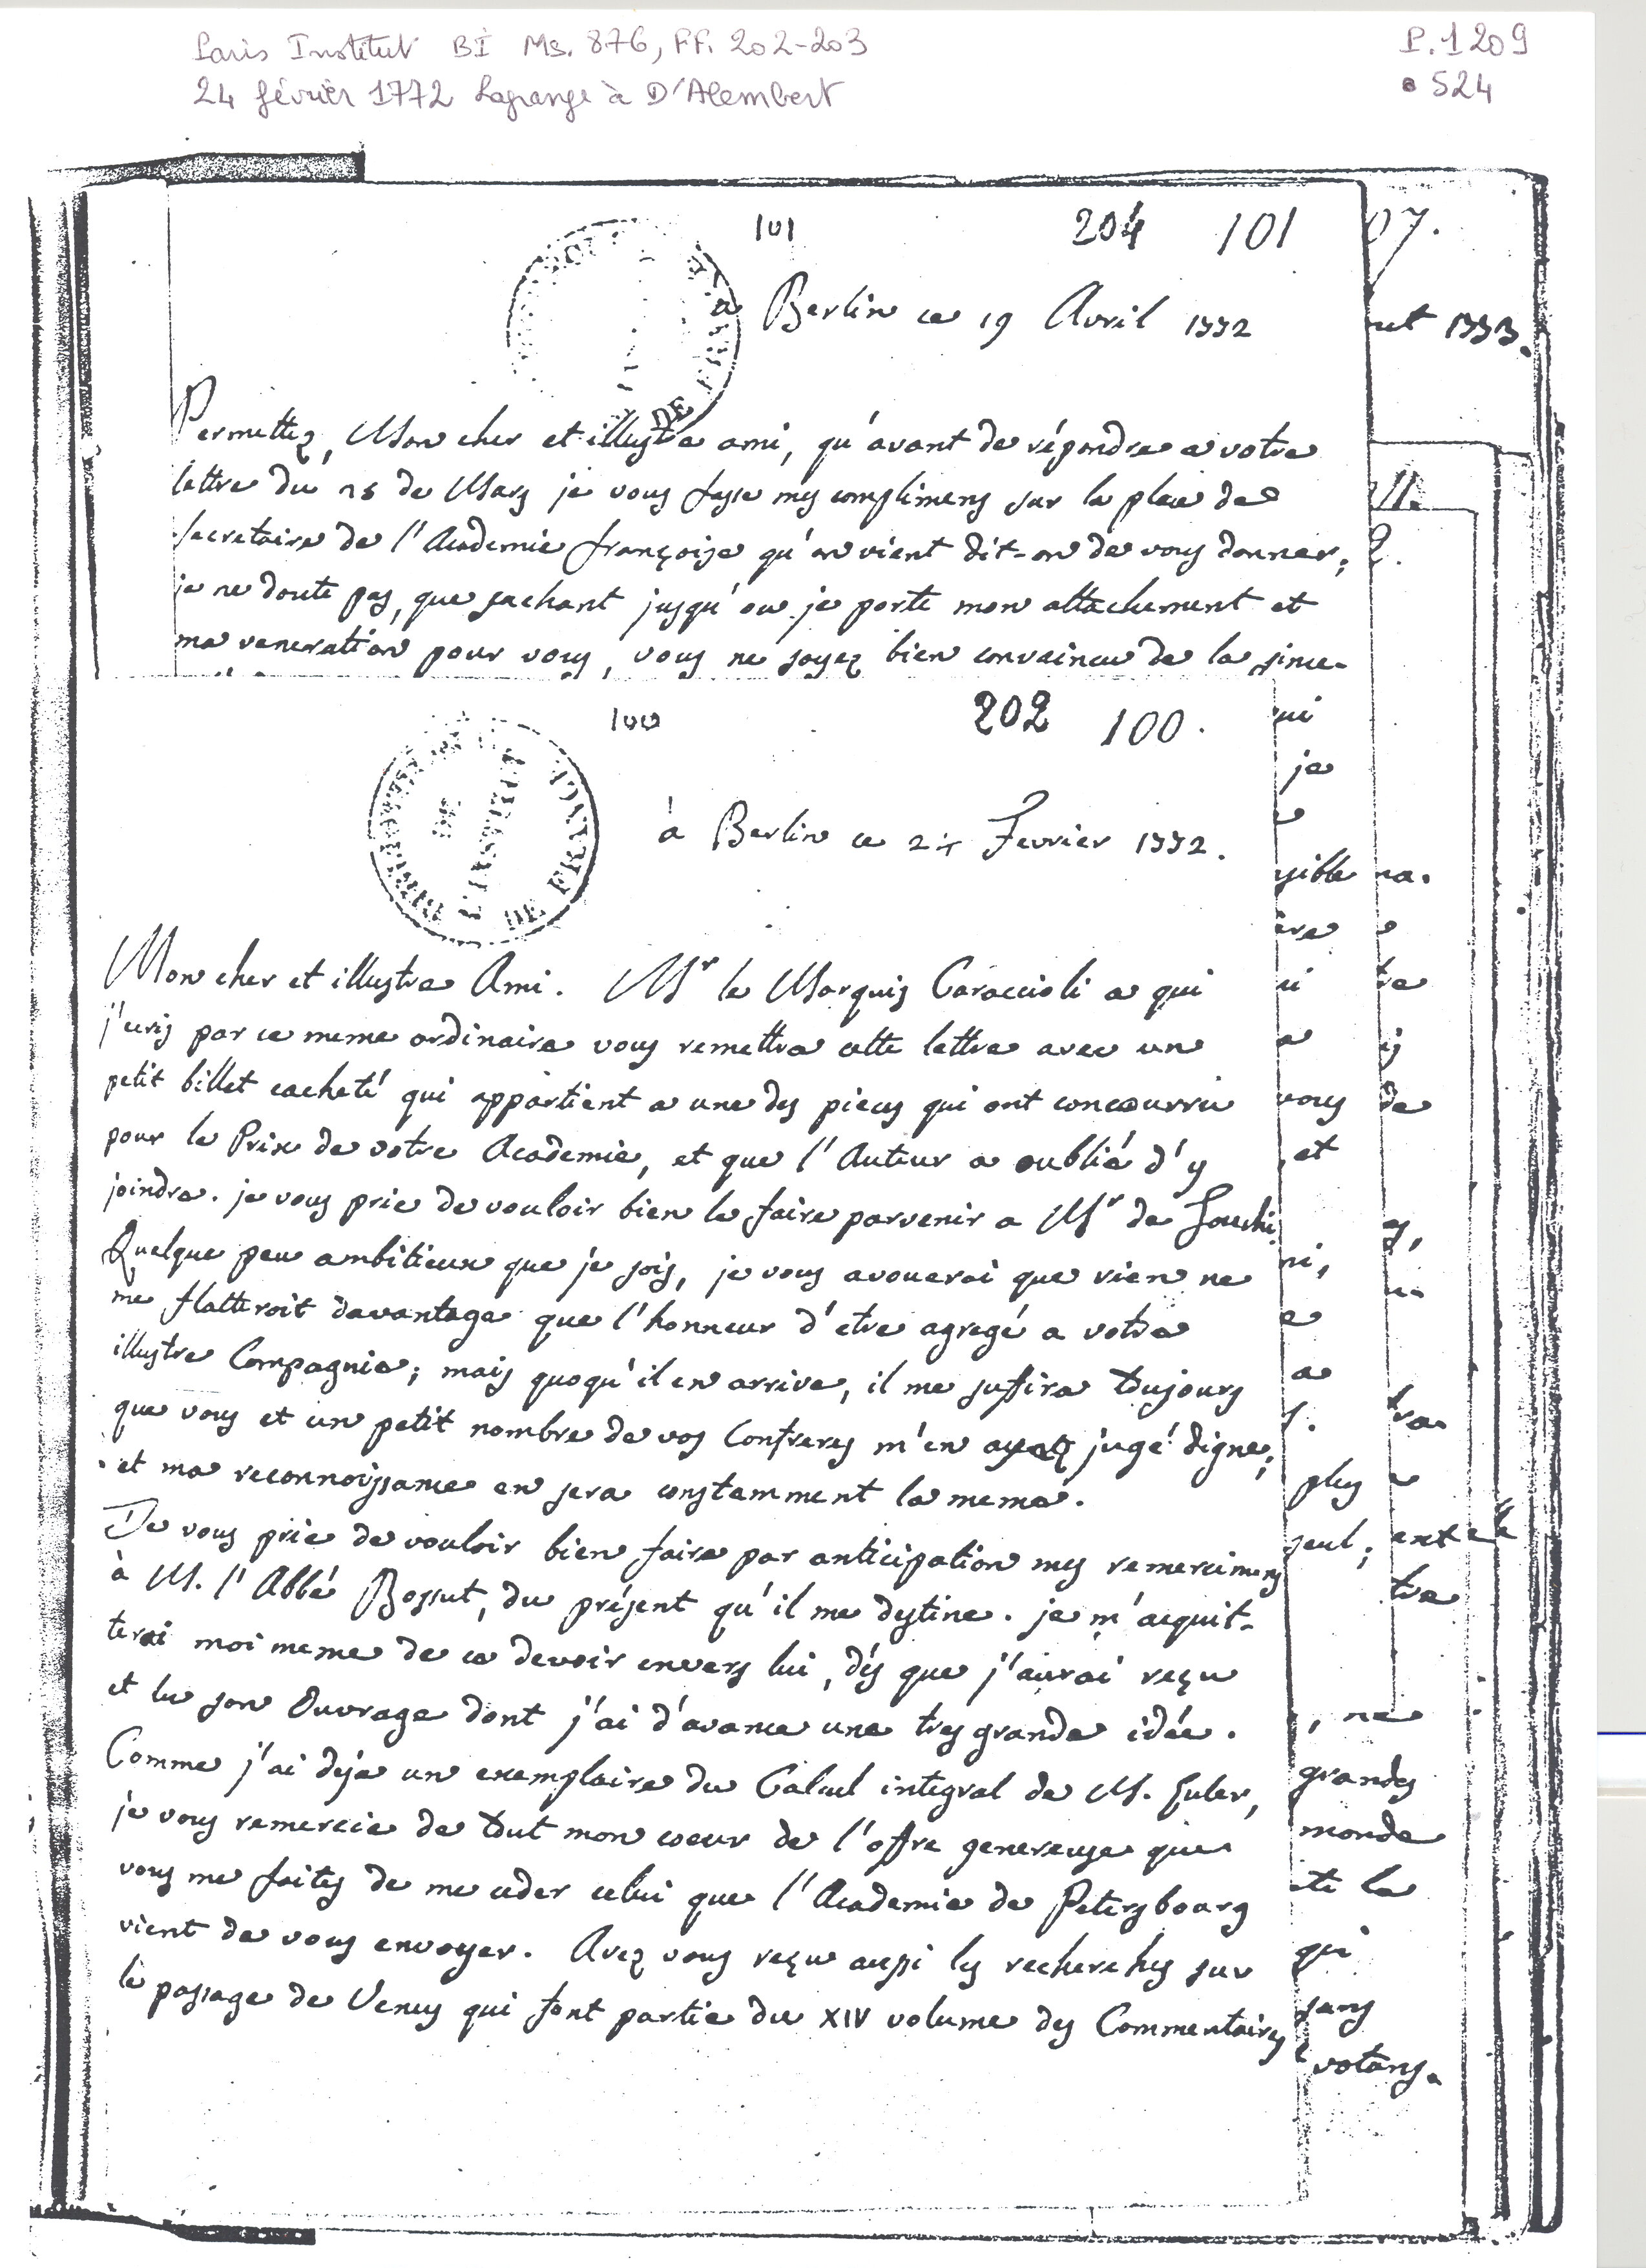 Paris Institut BI Ms. 876, FF. 202-203
24 février 1772 Lagrange à D'Alembert
P. 1209
524
101
204 101
07.
à Berlin ce 19 Avril 1772
ut 1773.
Permettez, Mon cher et illustre ami, qu'avant de répondre a votre
lettre du 25 de Mars je vous fasse mes complimens sur la place de
secretaire de l'Academie françoise qu'on vient dit-on de vous donner;
je ne doute pas, que sachant jusqu'ou je porte mon attachement et
ma veneration pour vous, vous ne soyez bien convaincu de la since-
100
202 100.
BIBLIOTHEQUE DE L'INSTITUT DE FRANCE
à Berlin ce 24 Fevrier 1772.
Mon cher et illustre Ami. Mr le Marquis Caraccioli a qui
j'ecris par ce meme ordinaire vous remettra cette lettre avec un
petit billet cacheté qui appartient a une des pieces qui ont concourru
pour le Prix de votre Academie, et que l'Auteur a oublié d'y
joindre. je vous prie de vouloir bien le faire parvenir a Mr de Fouchi.
Quelque peu ambitieux que je sois, je vous avouerai que rien ne
me flatteroit davantage que l'honneur d'etre agregé a votre
illustre Compagnie; mais quoqu'il en arrive, il me suffira toujours
que vous et un petit nombre de vos Confreres m'en ayez jugé digne;
et ma reconnoissance en sera constamment la meme.
Je vous prie de vouloir bien faire par anticipation mes remercimens
à M. l'Abbé Bossut, du présent qu'il me destine. je m'acquit-
terai moi meme de ce devoir envers lui, dés que j'aurai reçu
et lu son Ouvrage dont j'ai d'avance une tres grande idée.
Comme j'ai déja un exemplaire du Calcul integral de M. Euler,
je vous remercie de tout mon coeur de l'offre genereuse que
vous me faites de me ceder celui que l'Academie de Petersbourg
vient de vous envoyer. Avez vous reçu aussi les recherches sur
le passage de Venus qui font partie du XIV volume des Commentaires
je
vous de
et
plus
seul;
tre
, ne
grandes
monde
te la
qui
sans